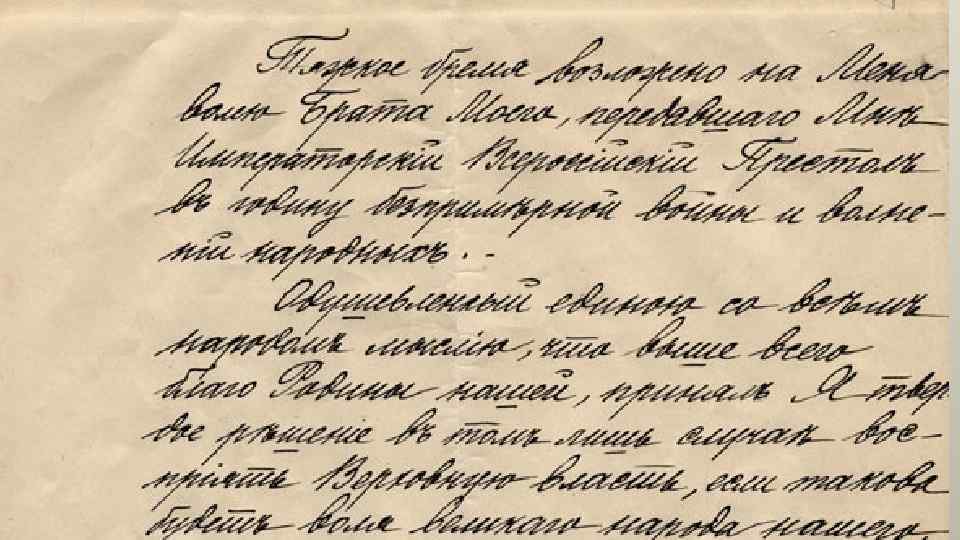 Тяжкое бремя возложено на Меня
волею Брата Моего, передавшаго Мнѣ
Императорскій Всероссійскій Престолъ
въ годину безпримѣрной войны и волне-
ній народныхъ.-
Одушевленный единою со всѣмъ
народомъ мыслію, что выше всего
благо Родины нашей, принялъ Я твер
дое рѣшеніе въ томъ лишь случаѣ вос-
пріять Верховную власть, если такова
будетъ воля великаго народа нашего,